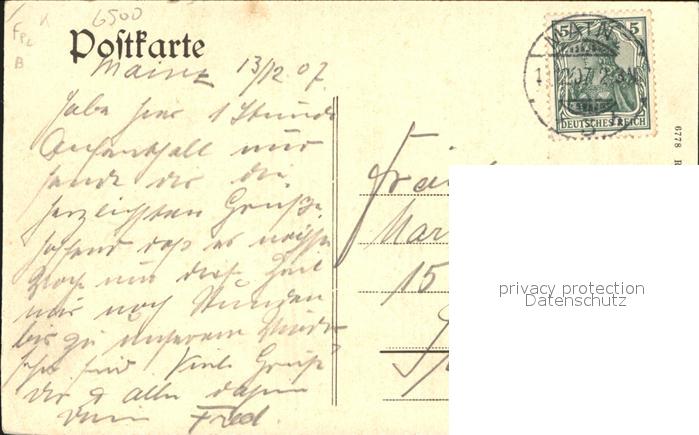 6500
Postkarte
Mainz 13/12 07.
Habe hier 1 Stunde
Aufenthalt und
sende dir die
herzlichsten Grüße.
hoffend daß es nächste
Woche um diese Zeit
nur noch Stunden
bis zu unserem Wieder
sehen sind. Viele Grüße
dir & allen daheim
Dein Fred.
5 5
DEUTSCHES REICH
MAINZ
6778
Mar
15
privacy protection
Datenschutz